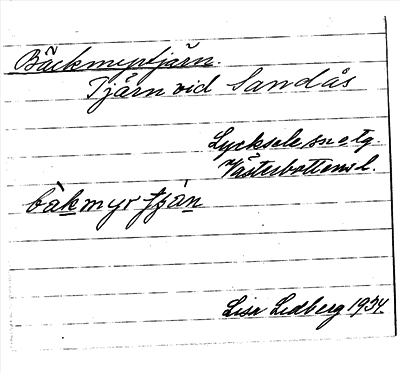 Bäckmyrtjärn.
Tjärn vid Sandås
Lycksele sn o tg.
Västerbottens l.
bàkmyrtjàn
Lisa Lidberg 1934.